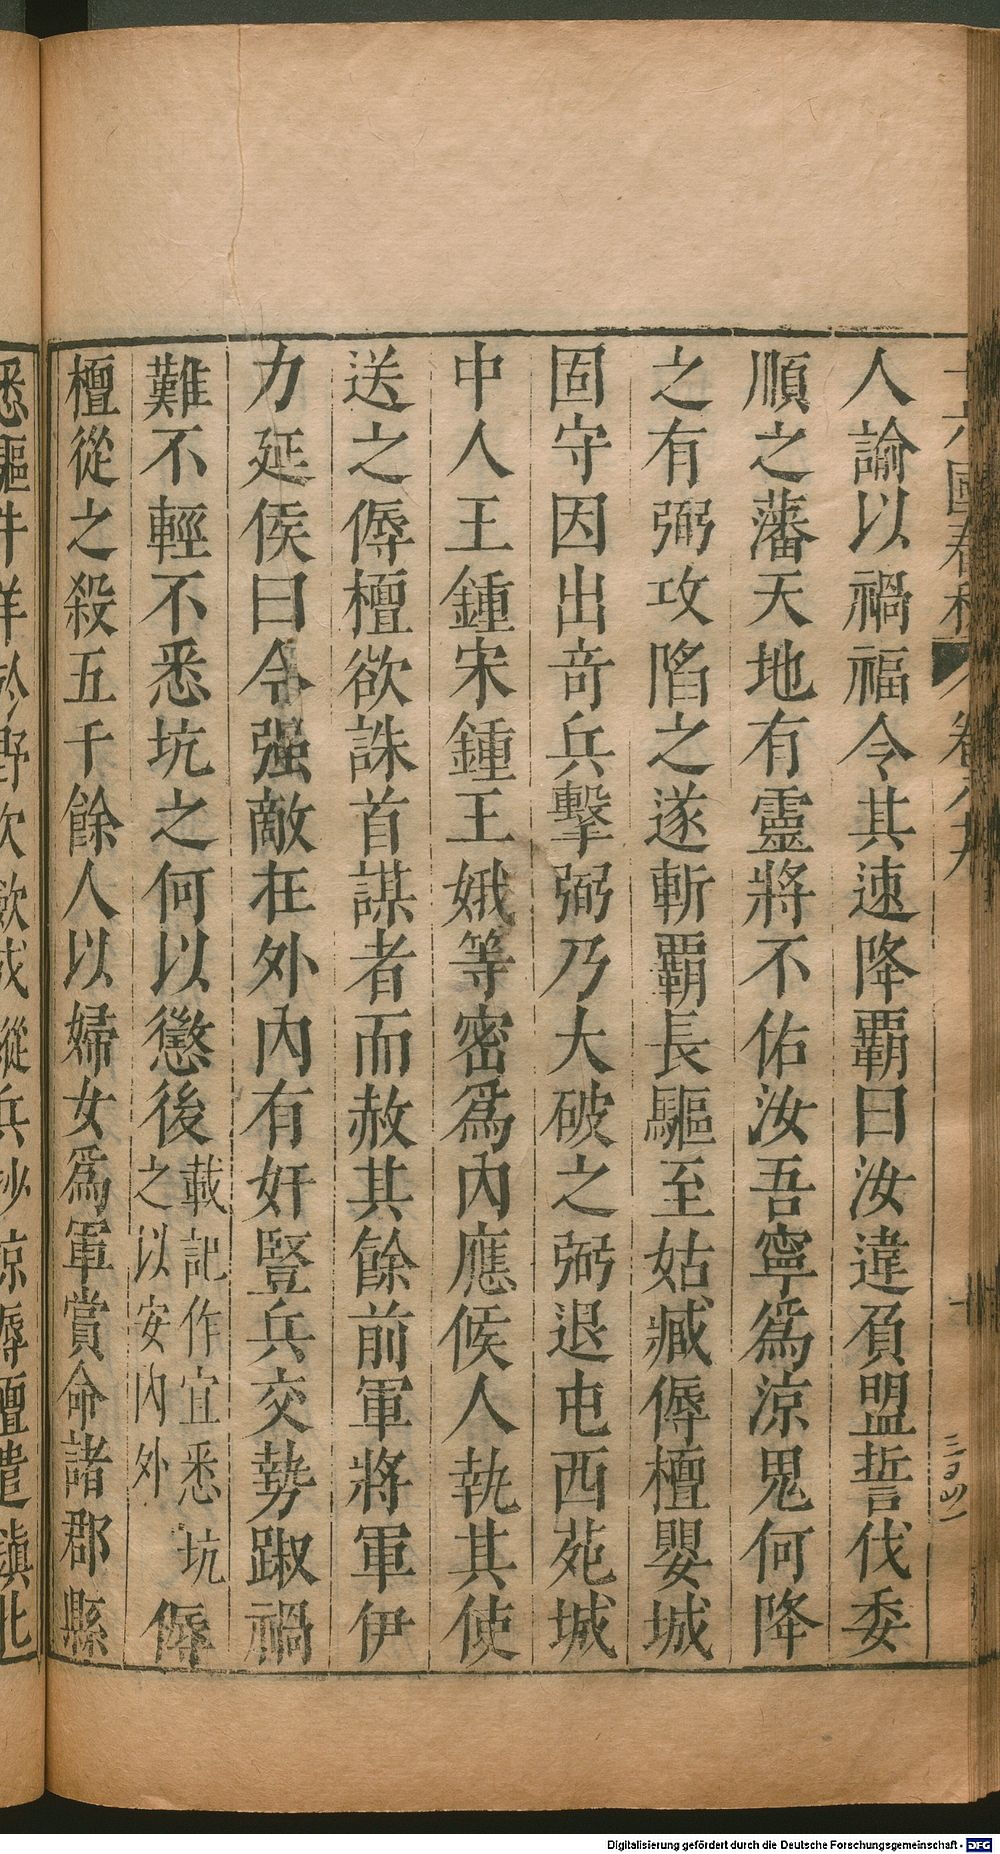 十六國春秋 卷八九
人諭以禍福令其速降覇曰汝違負盟誓伐委
順之藩天地有靈將不佑汝吾寧爲涼鬼何降
之有弼攻陷之遂斬覇長驅至姑臧傉檀嬰城
固守因出奇兵擊弼乃大破之弼退屯西苑城
中人王鍾宋鍾王娥等密爲內應候人執其使
送之傉檀欲誅首謀者而赦其餘前軍將軍伊
力延侯曰今强敵在外內有奸豎兵交勢踧禍
難不輕不悉坑之何以懲後
載記作宜悉坑
之以安內外
傉
檀從之殺五千餘人以婦女爲軍賞命諸郡縣
悉驅牛羊於野次歛成縱兵抄掠傉檀遣鎮北
Digitalisierung gefördert durch die Deutsche Forschungsgemeinschaft - DFG